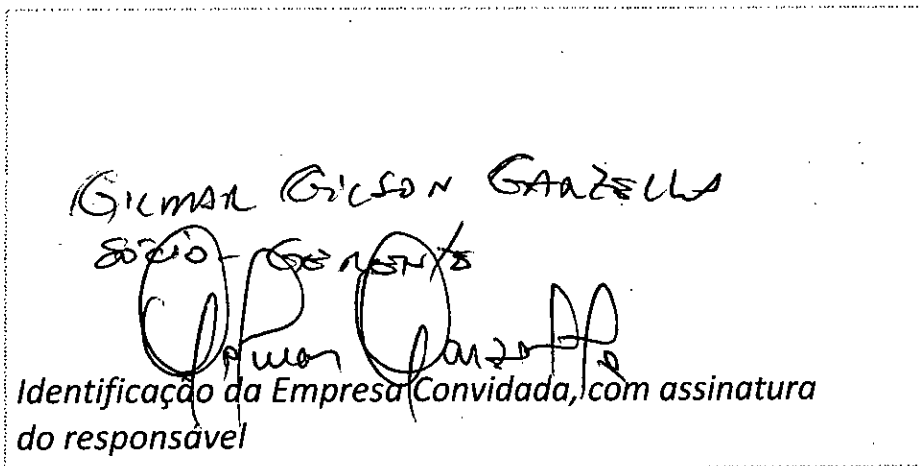 Gilmar Gilson Garzella
Sócio-Gerente
Gilmar Garzella
Identificação da Empresa Convidada, com assinatura
do responsável